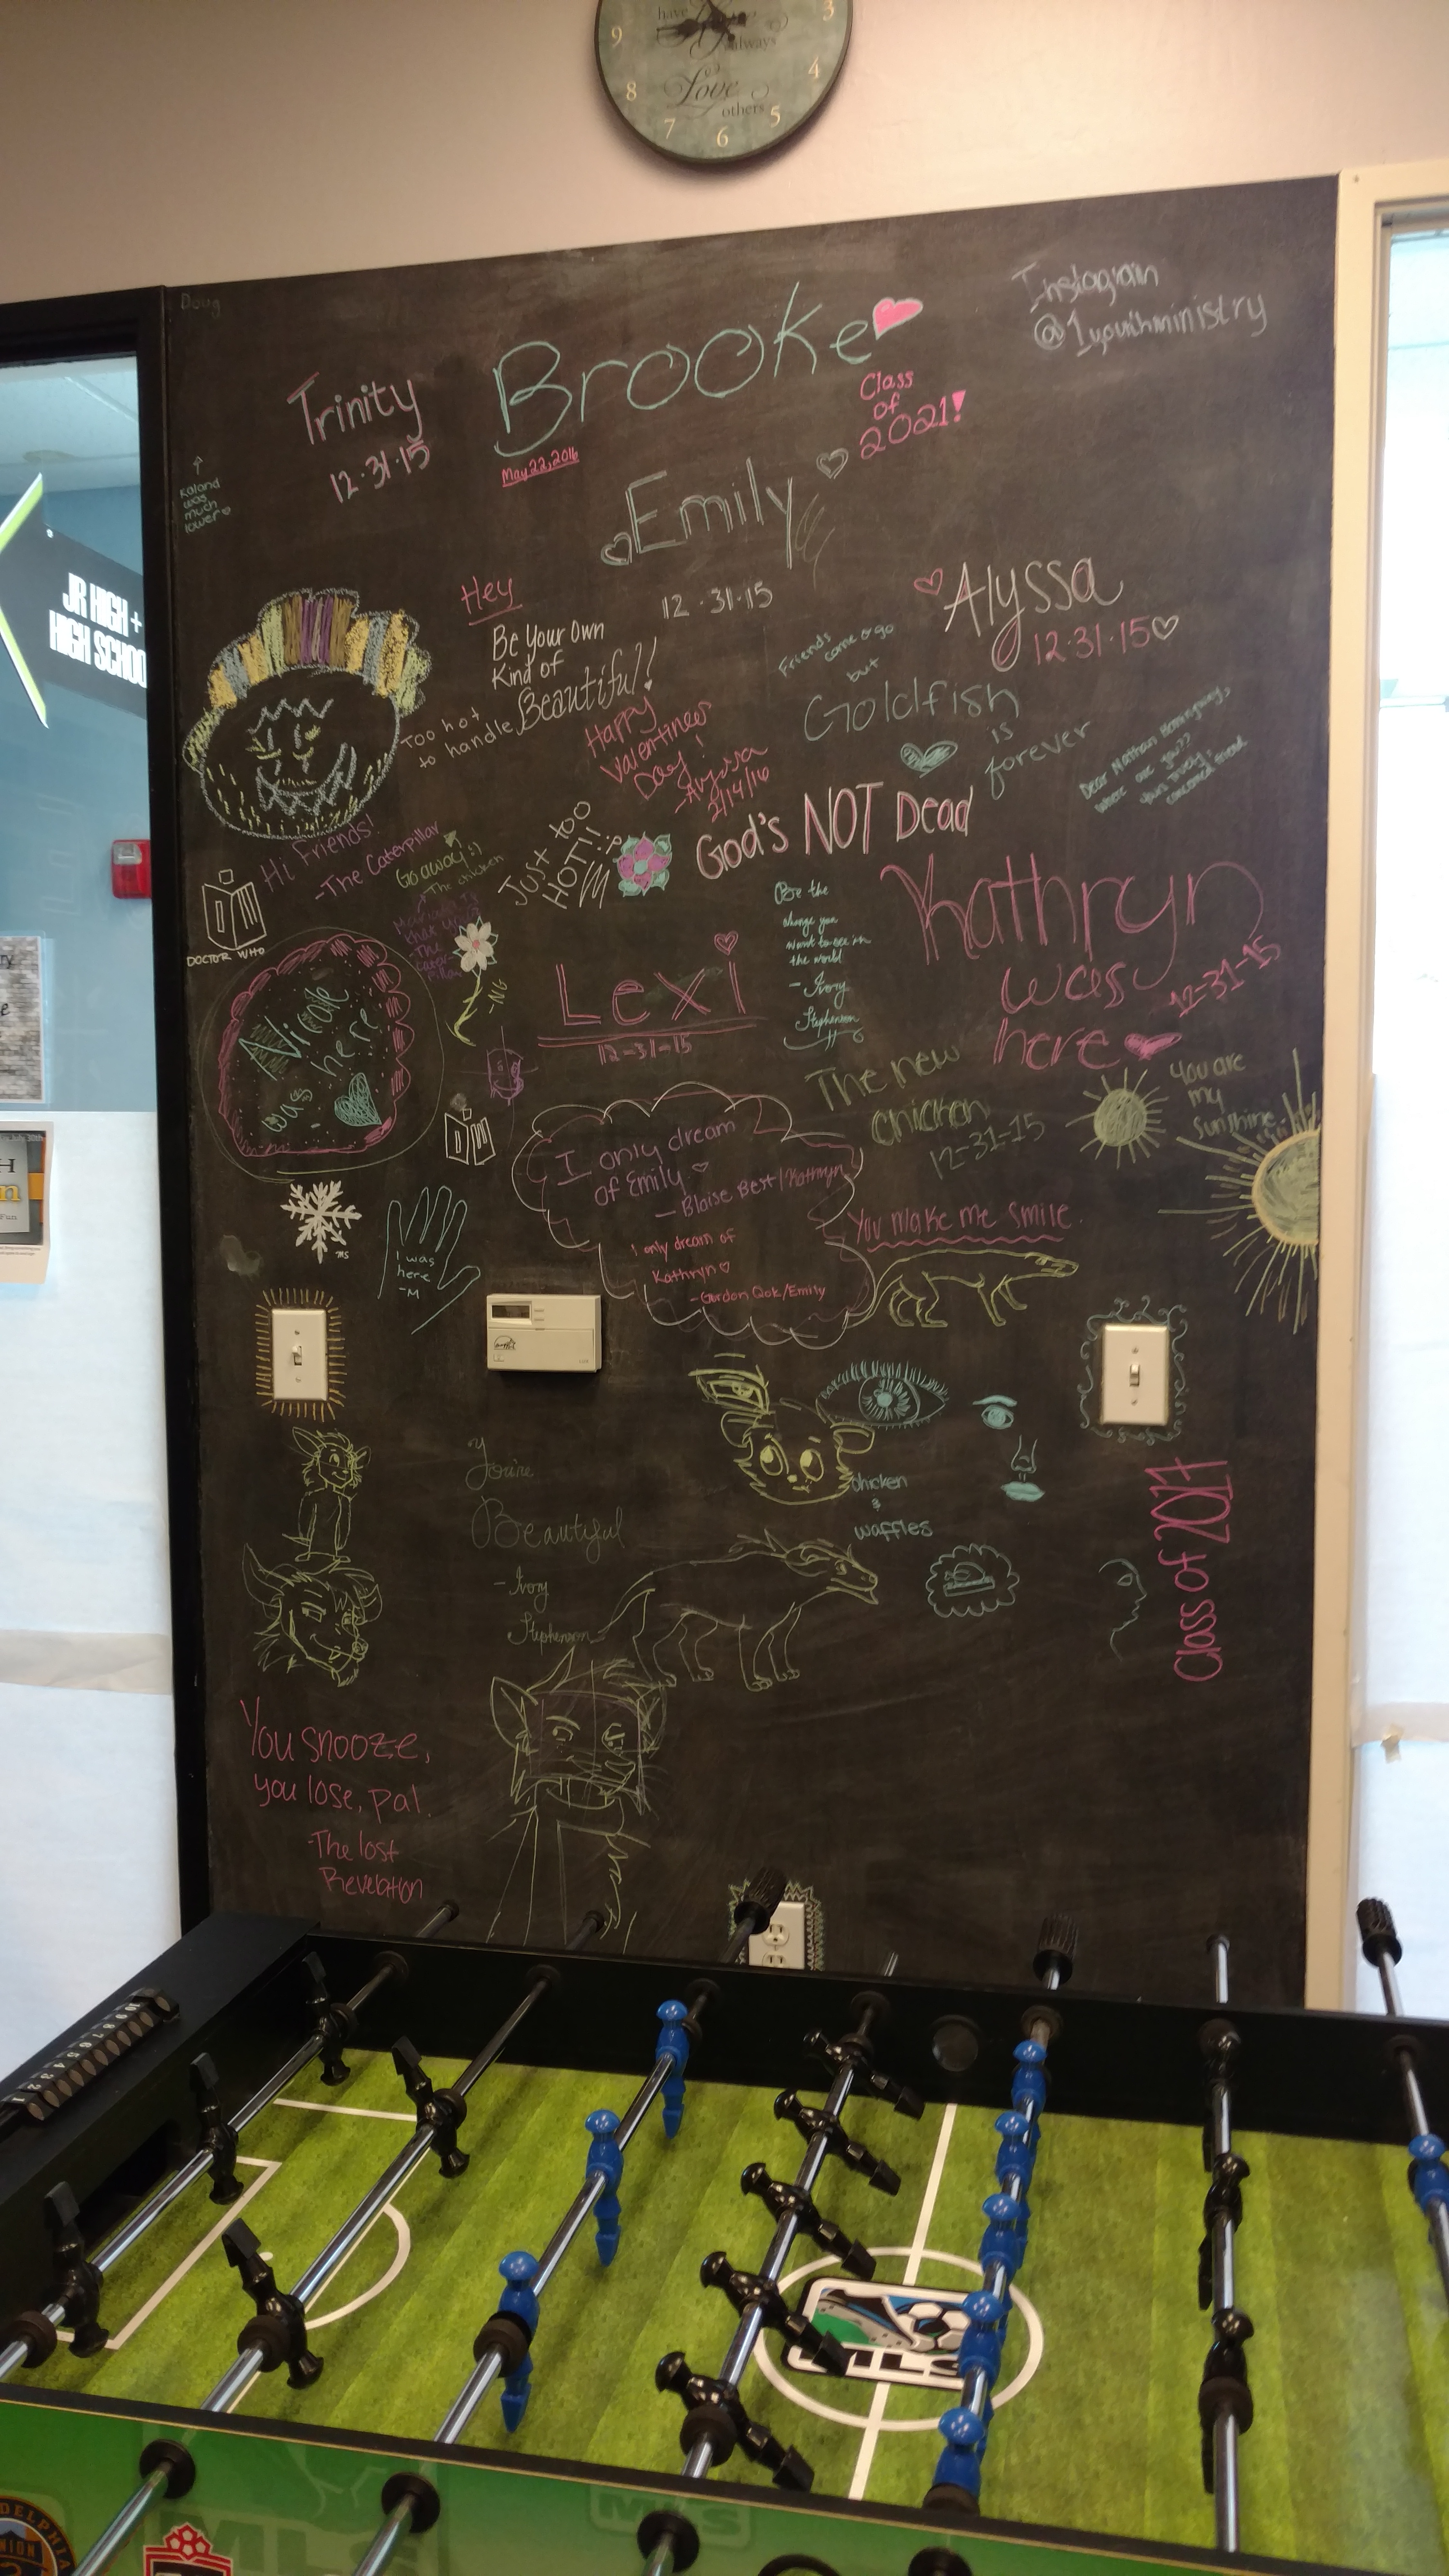 have
always
Love
others
9
8
7
6
5
4
3
Doug
Instagram
@1youthministry
Brooke
May 22, 2016
Class
of
2021!
Trinity
12·31·15
Kaland
was
much
lower
Emily
12·31·15
JR HIGH +
HIGH SCHOO
Hey
Be Your Own
Kind of
Beautiful!
Too hot
to handle
Alyssa
12·31·15
Friends
come & go
but
Goldfish
is
forever
Happy
Valentines
Day!
-Alyssa
2/14/16
Dear Nathan Hemingway,
where are you??
yours truly,
concerned friend
God's NOT Dead
Just too
HOT!!
Hi Friends!
-The Caterpillar
Go away :)
-The chicken
that you?
-The
Cater-
pillar
DW
DOCTOR WHO
-NG
Nicole
was here
Lexi
12-31-15
Be the
change you
want to see in
the world
- Ivory
Stephenson
Kathryn
was
here
12-31-15
The new
chicken
12-31-15
You are
my
sunshine
DW
I only dream
of Emily
- Blaise Best / Kathryn
I only dream of
Kathryn
-Gordon Qok/Emily
You make me smile.
MS
I was
here
-M
You're
Beautiful
- Ivory
Stephenson
chicken
&
waffles
Class of 2017
You snooze,
you lose, pal.
-The lost
Revelation
10
9
8
7
6
5
4
3
2
1
MLS